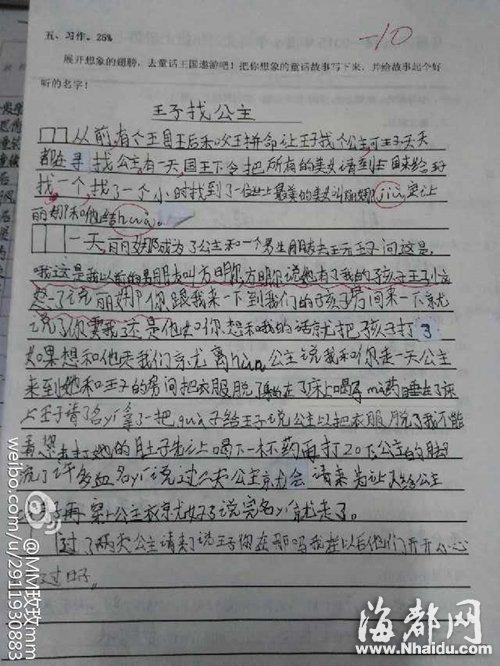 五、习作。25%
-10
展开想象的翅膀，去童话王国遨游吧！把你想象的童话故事写下来，并给故事起个好
听的名字！
王子找公主
从前，有个王国王后和国王拼命让王子找个公主可王子天天
都在寻找公主，有一天，国王下令把所有的美女请到
找一个，找了一个小时找到了位最美的美女叫丽娜，jiù要让
丽娜和他结hūn。
一天，丽娜成为了公主和一个男生朋友去玩王子问这是，
哦这是我以前的男朋友叫方明，方明说她有了我的孩子王子
说丽娜你跟我来一下到我们的孩子房间来一下就
说了你要我还是他如你想和我的话就把孩子打了
如果想和他走我们就离hūn公主说我和你走一天公主
来到她和王子的房间把衣服脱了躺在了床上喝了má药睡在了床
上王子请名yī拿了一把给王子说公主以把衣服脱了我不能
看去打她的肚子先让喝下一杯药再打20下公主的脚
流了许多血名yī说过公主就会
再穿上公主衣就好了说完名yī就走了。
过了两天公主说王子你在那吗我在以后他们开开心心
过日子。
weibo.com/u/2911930883
@MM敏敏mm
海都网
www.Nhaidu.com